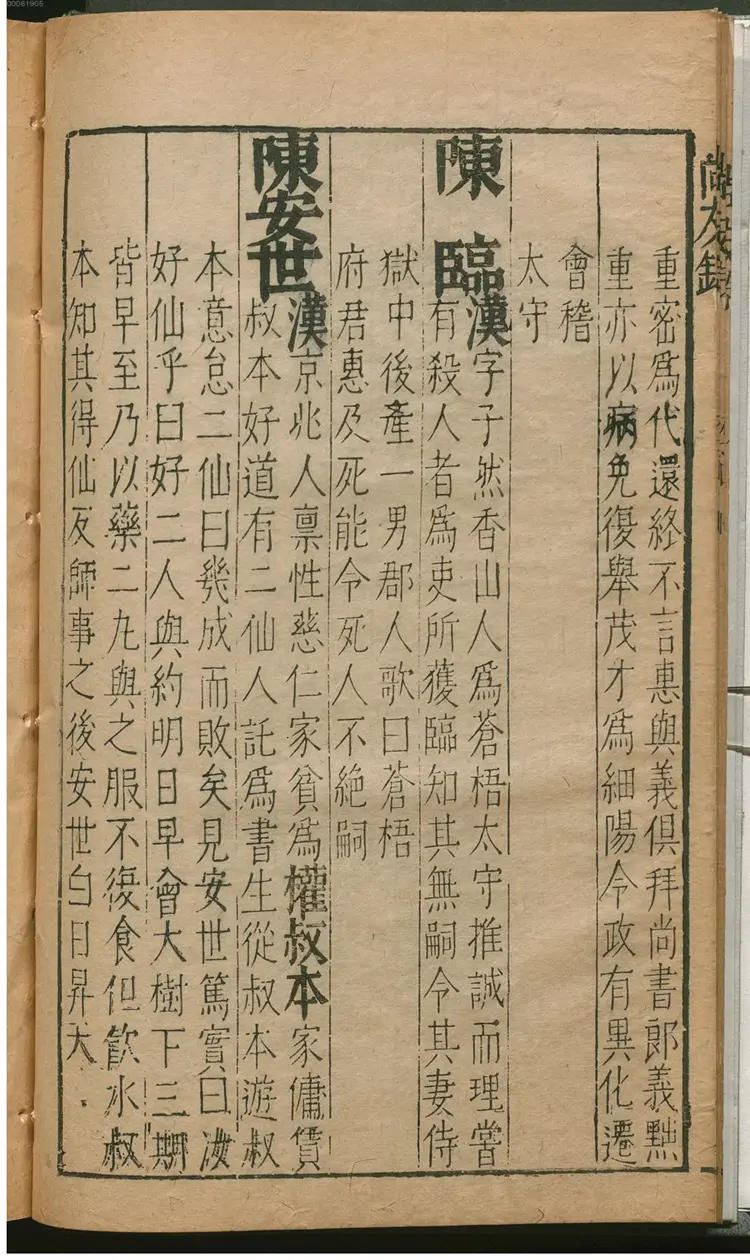 00061905
尚友錄
重密為代還終不言惠與義俱拜尚書郎義黜
重亦以病免復舉茂才為細陽令政有異化遷
會稽
太守
陳臨漢字子然香山人為蒼梧太守推誠而理嘗
有殺人者為吏所獲臨知其無嗣令其妻侍
獄中後產一男郡人歌曰蒼梧
府君惠及死能令死人不絕嗣
陳安世漢京兆人禀性慈仁家貧為權叔本家傭賃
叔本好道有二仙人託為書生從叔本遊叔
本意怠二仙曰幾成而敗矣見安世篤實曰汝
好仙乎曰好二人與約明日早會大樹下三期
皆早至乃以藥二九與之服不復食但飲水叔
本知其得仙反師事之後安世白日昇天